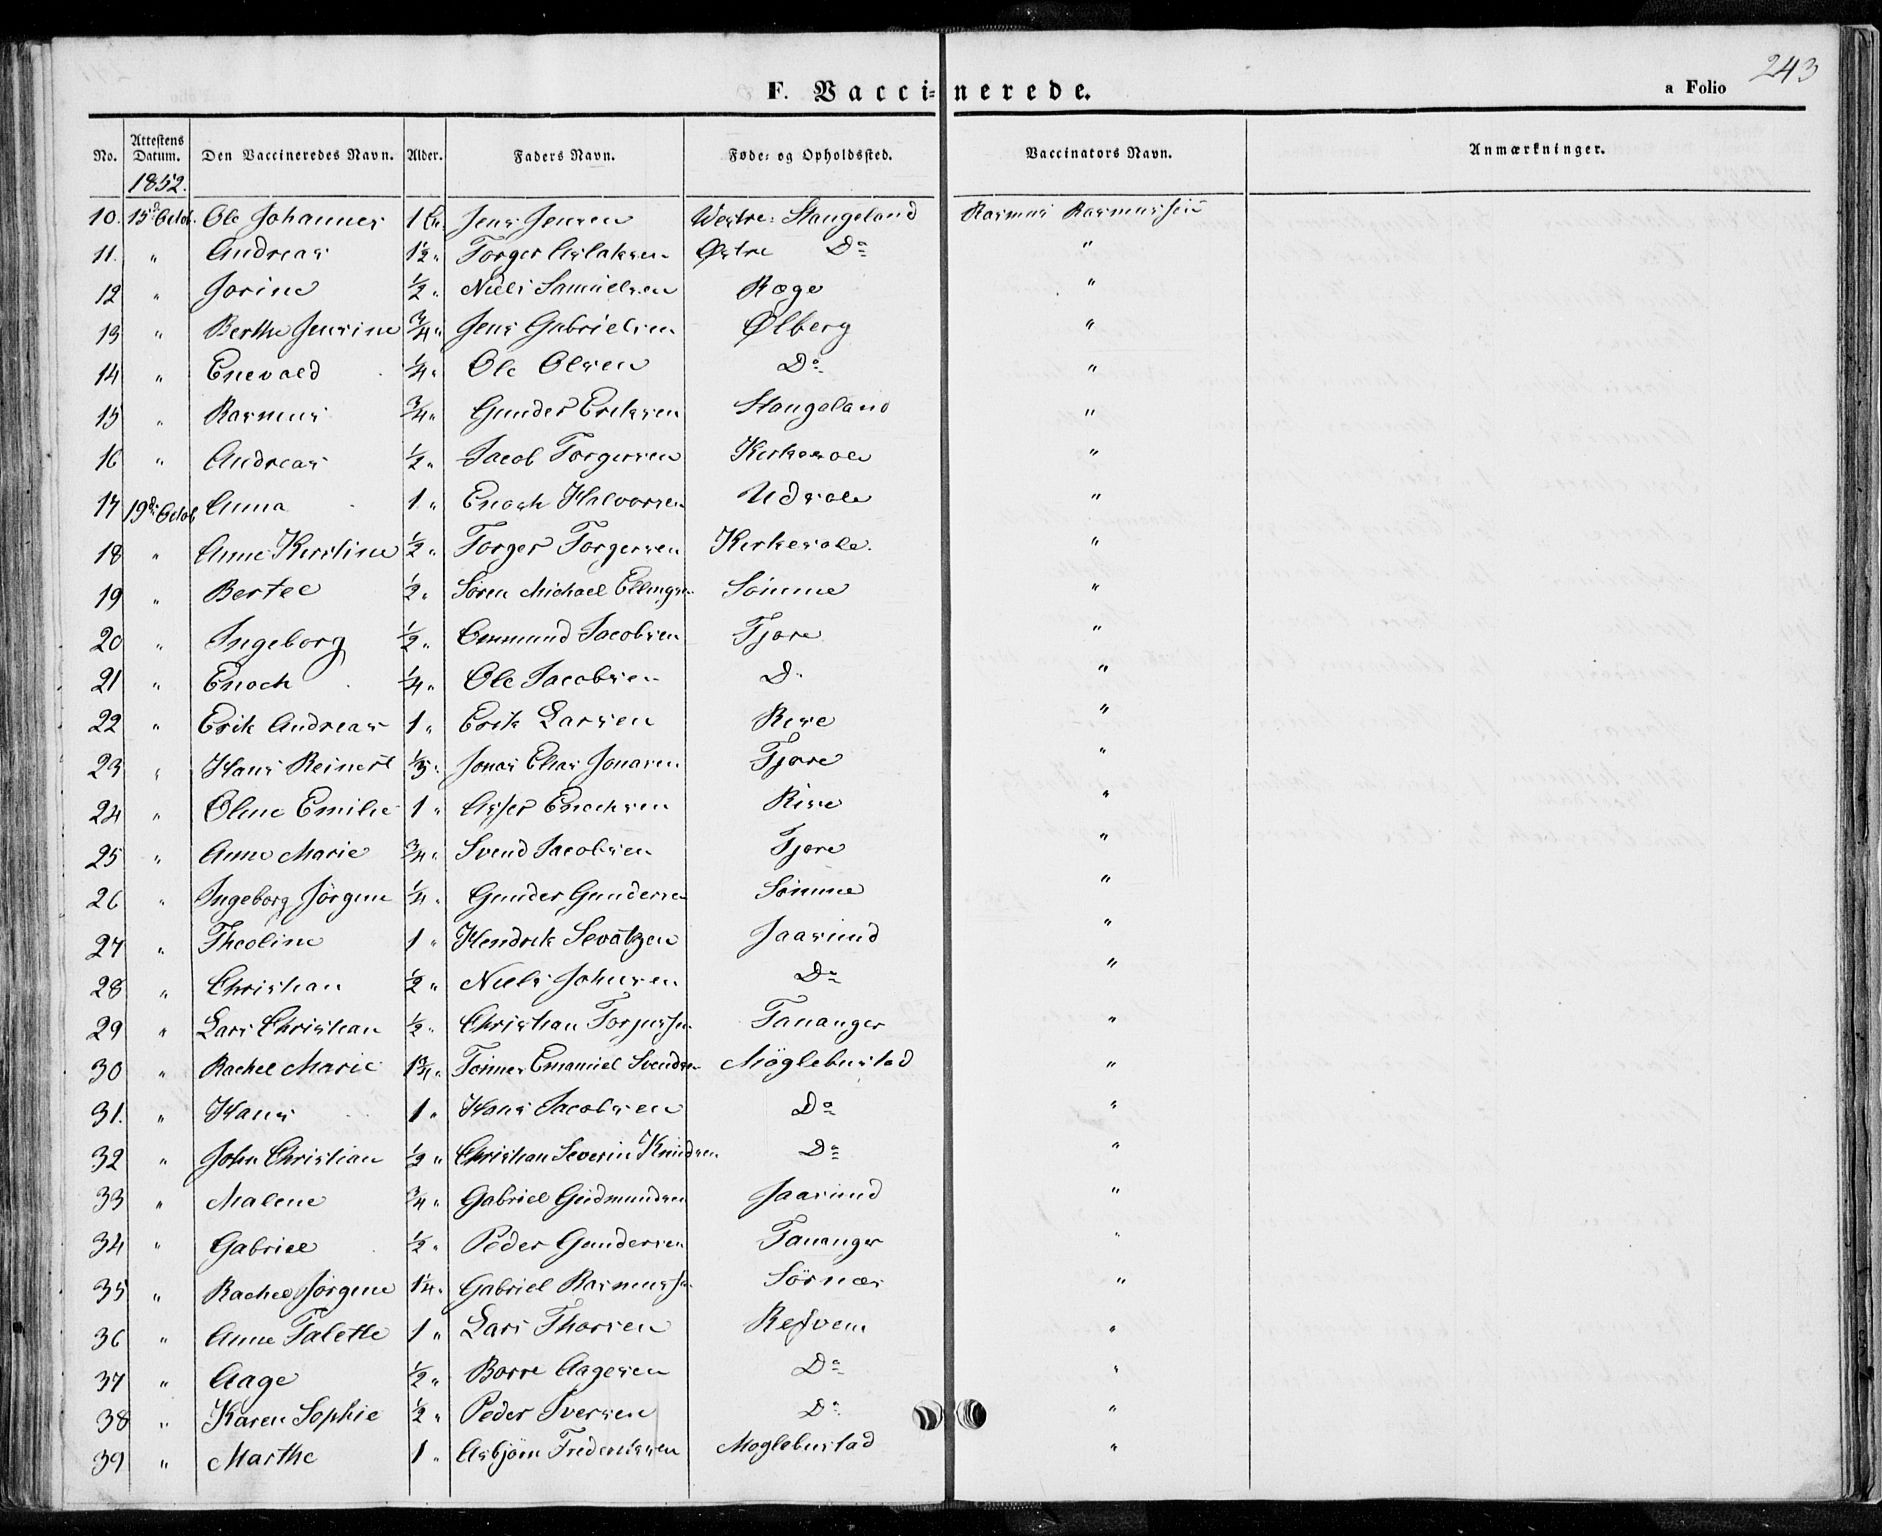 243
F. Vaccinerede. a Folio
No. Attestens Datum. Den Vaccineredes Navn. Alder. Faders Navn. Føde- og Opholdssted. Vaccinators Navn. Anmærkninger.
1852.
10. 15d Octob. Ole Johannes 1 Jens Jensen Westre Stangeland Rasmus Rasmussen
11. " Andreas 1½ " Torger Aslaksen Østre Do "
12 " Jorine ½ " Niels Samuelsen Ræge "
13 " Berthe Jensine ¾ " Jens Gabrielsen Ølberg "
14 " Enevald ¼ " Ole Olsen Do "
15 " Rasmus ¾ " Gunder Eriksen Stangeland "
16 " Andreas ½ " Jacob Torgersen Kirkesole "
17 19d Octob Anna 1 " Enoch Halvorsen Udsole "
18 " Anne Kirstine ½ " Torger Torgersen Kirkesole. "
19 " Bertel ½ " Sören Michael Sömme "
20 " Ingeborg ½ " Emmund Jacobsen Tjore "
21 " Enoch ¼ " Ole Jacobsen Do "
22 " Erik Andreas 1 " Erik Larsen Rise "
23 " Hans Reinert ⅓ " Jonas Elias Jonasen Tjore "
24 " Oline Emilie 1 " Asser Enochsen Rise "
25 " Anne Marie ¾ " Svend Jacobsen Tjore "
26 " Ingeborg Jörgine ¼ " Gunder Gundersen Sömme "
27 " Theoline 1 " Hendrik Jaasund "
28 " Christian ½ " Niels Johnsen Do "
29 " Lars Christian ½ " Christian Torjussen Tananger "
30 " Rachel Marie 1¾ " Tönnes Emanuel Svendsen Möglebustad "
31. " Hans 1 " Hans Jacobsen Do "
32 " John Christian ½ " Christian Severin Knudsen Do "
33 " Malene ¾ " Gabriel Gudmundsen Jaasund "
34 " Gabriel ½ " Peder Gundersen Tananger "
35 " Rachel Jörgine 1¼ " Gabriel Rasmussen Sörnæs "
36 " Anne Talette 1 " Lars Thorsen Refvem "
37 " Aage ½ " Borre Aagesen Do "
38 " Karen Sophie ½ " Peder Iversen Do "
39 " Marthe 1 " Asbjörn Frederiksen Moglebustad "